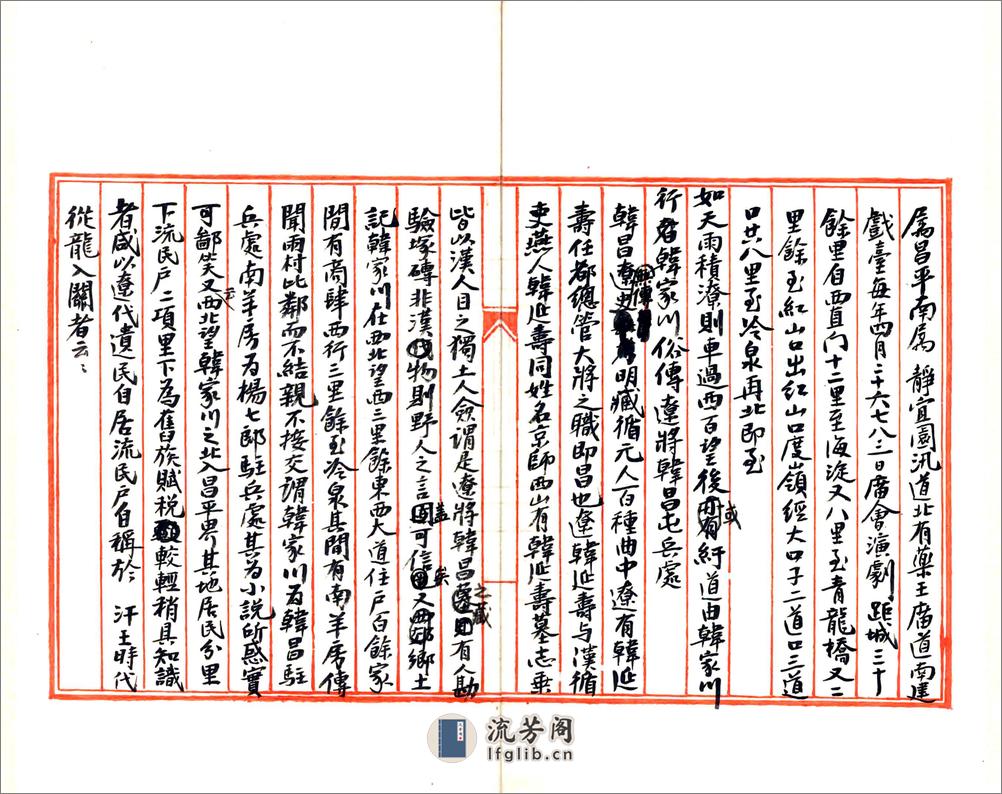 屬昌平南屬 靜宜園汛道北有藥王廣道南建
戲臺每年四月二十六七八三日廣會演劇 距城三十
餘里自西直門十二里至海淀又八里至青龍橋又二
里餘至紅山口出紅山口度嶺經大口子二道口三道
口廿八里至冷泉再北即至
如天雨積潦則車過西百望後或有紆道由韓家川
行者韓家川俗傳遼將韓昌屯兵處
韓昌遼史無傳明臧循元人百種曲中遼有韓延
壽任都總管大將之職即昌也遼韓延壽與漢循
吏燕人韓延壽同姓名京師西山有韓延壽墓志垂
皆以漢人目之獨土人僉謂是遼將韓昌之藏有人勘
驗塚磚非漢物則野人之言蓋可信矣又西郊鄉土
記韓家川在西北望西三里餘東西大道住戶百餘家
間有商肆西行三里餘至冷泉其間有南羊房傳
聞兩村比鄰而不結親不接交謂韓家川為韓昌駐
兵處南羊房為楊七郎駐兵處其為小說所惑實
可鄙笑又云西北望韓家川之北入昌平界其地居民分里
下流民戶二項里下為舊族賦稅較輕稍具知識
者咸以遼代遺民自居流民戶自稱於 汗王時代
從龍入關者云云
流芳阁
lfglib.cn